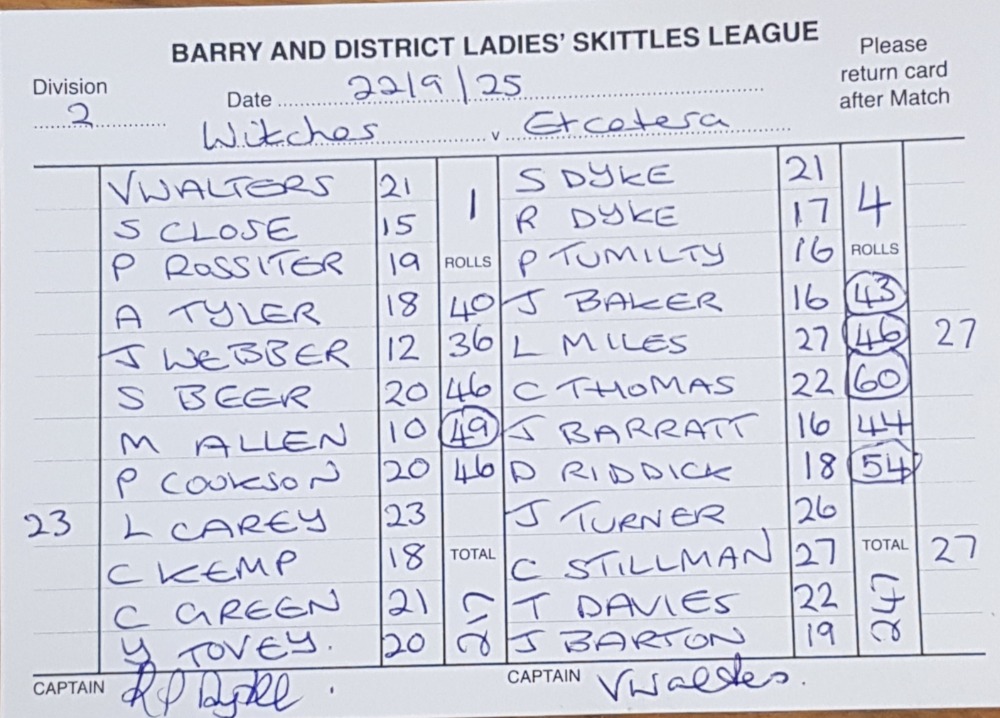 BARRY AND DISTRICT LADIES' SKITTLES LEAGUE
Please
return card
after Match
Division
2
Date 22/9/25
Witches v Etcetera
V WALTERS 21 1 S DYKE 21 4
S CLOSE 15 R DYKE 17
P ROSSITER 19 ROLLS P TUMILTY 16 ROLLS
A TYLER 18 40 J BAKER 16 43
J WEBBER 12 36 L MILES 27 46 27
S BEER 20 46 C THOMAS 22 60
M ALLEN 10 49 J BARRATT 16 44
P COOKSON 20 46 D RIDDICK 18 54
23 L CAREY 23 J TURNER 26
C KEMP 18 TOTAL C STILLMAN 27 TOTAL 27
C GREEN 21 217 T DAVIES 22 247
Y TOVEY. 20 J BARTON 19
CAPTAIN CAPTAIN V Walters.